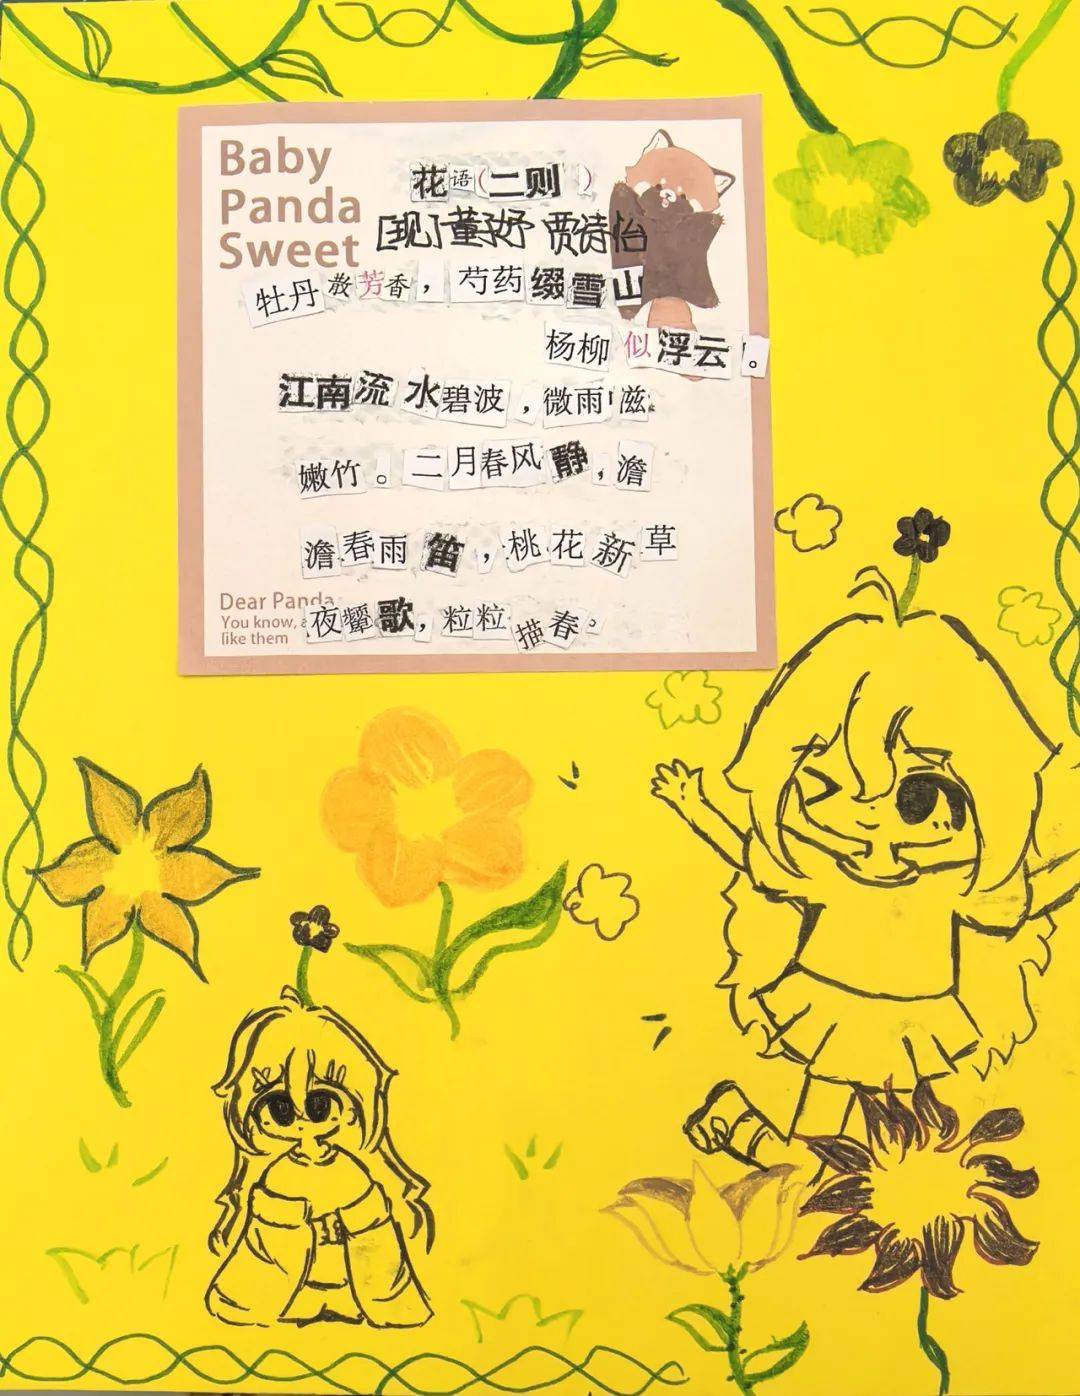 Baby
Panda
Sweet
花语(二则)
[现]董子妤 贾诗怡
牡丹散芳香，芍药缀雪山
杨柳似浮云。
江南流水碧波，微雨滋
嫩竹。二月春风静，澹
澹春雨笛，桃花新草
夜颦歌，粒粒描春。
Dear Panda
You know, a
like them